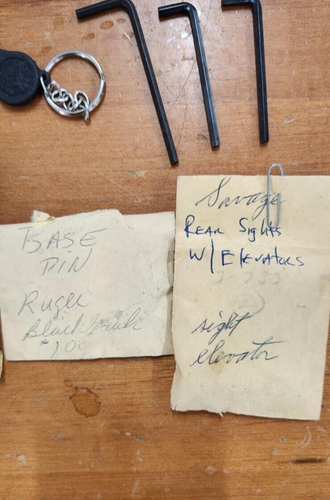 BASE
PIN
Ruger
Blackhawk
Savage
REAR SigHtS
W/ElEvAtoRS
sight
elevator